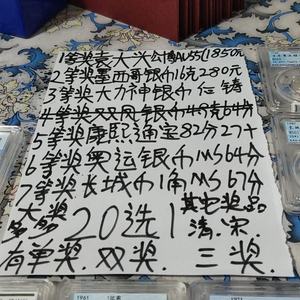 1等奖袁大头公博AU55(1850元
2等奖墨西哥银币16克280元
3等奖大力神银币仁铸
4等奖双凤银币48克64分
5等奖康熙通宝82分27+
6等奖奥运银币MS64分
7等奖长城币1角MS67分
大奖 20选1 其它奖品
清.宋.
有单奖.双奖.三奖.